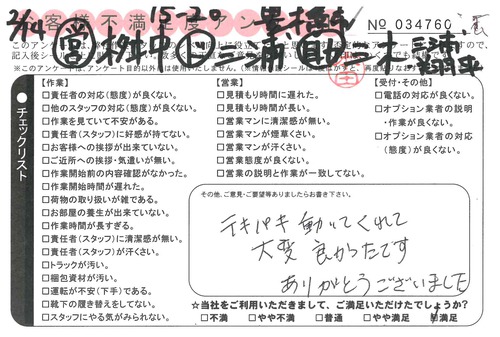 お客様不満足度アンケート
№ 034760
15-20
2/14
チェックリスト
【作業】
□責任者の対応(態度)が良くない。
□他のスタッフの対応(態度)が良くない。
□作業を見ていて不安がある。
□責任者(スタッフ)に好感が持てない。
□お客様への挨拶が出来ていない。
□ご近所への挨拶・気遣いが無い。
□作業開始前の内容確認がなかった。
□作業開始時間が遅れた。
□荷物の取り扱いが雑である。
□お部屋の養生が出来ていない。
□作業時間が長すぎる。
□責任者(スタッフ)に清潔感が無い。
□責任者(スタッフ)が汗くさい。
□トラックが汚い。
□梱包資材が汚い。
□運転が不安(下手)である。
□靴下の履き替えをしてない。
□スタッフにやる気がみられない。
【営業】
□見積もり時間に遅れた。
□見積もり時間が長い。
□営業マンに清潔感が無い。
□営業マンが煙草くさい。
□営業マンが汗くさい。
□営業態度が良くない。
□営業の説明と作業が一致してない。
【受付・その他】
□電話の対応が良くない。
□オプション業者の説明
・作業が良くない。
□オプション業者の対応
(態度)が良くない。
その他、ご意見・ご要望等ありましたらお書き下さい。
テキパキ動いてくれて
大変良かったです
ありがとうございました
☆当社をご利用いただきまして、ご満足いただけたでしょうか?
□不満 □やや不満 □普通 □やや満足 □満足